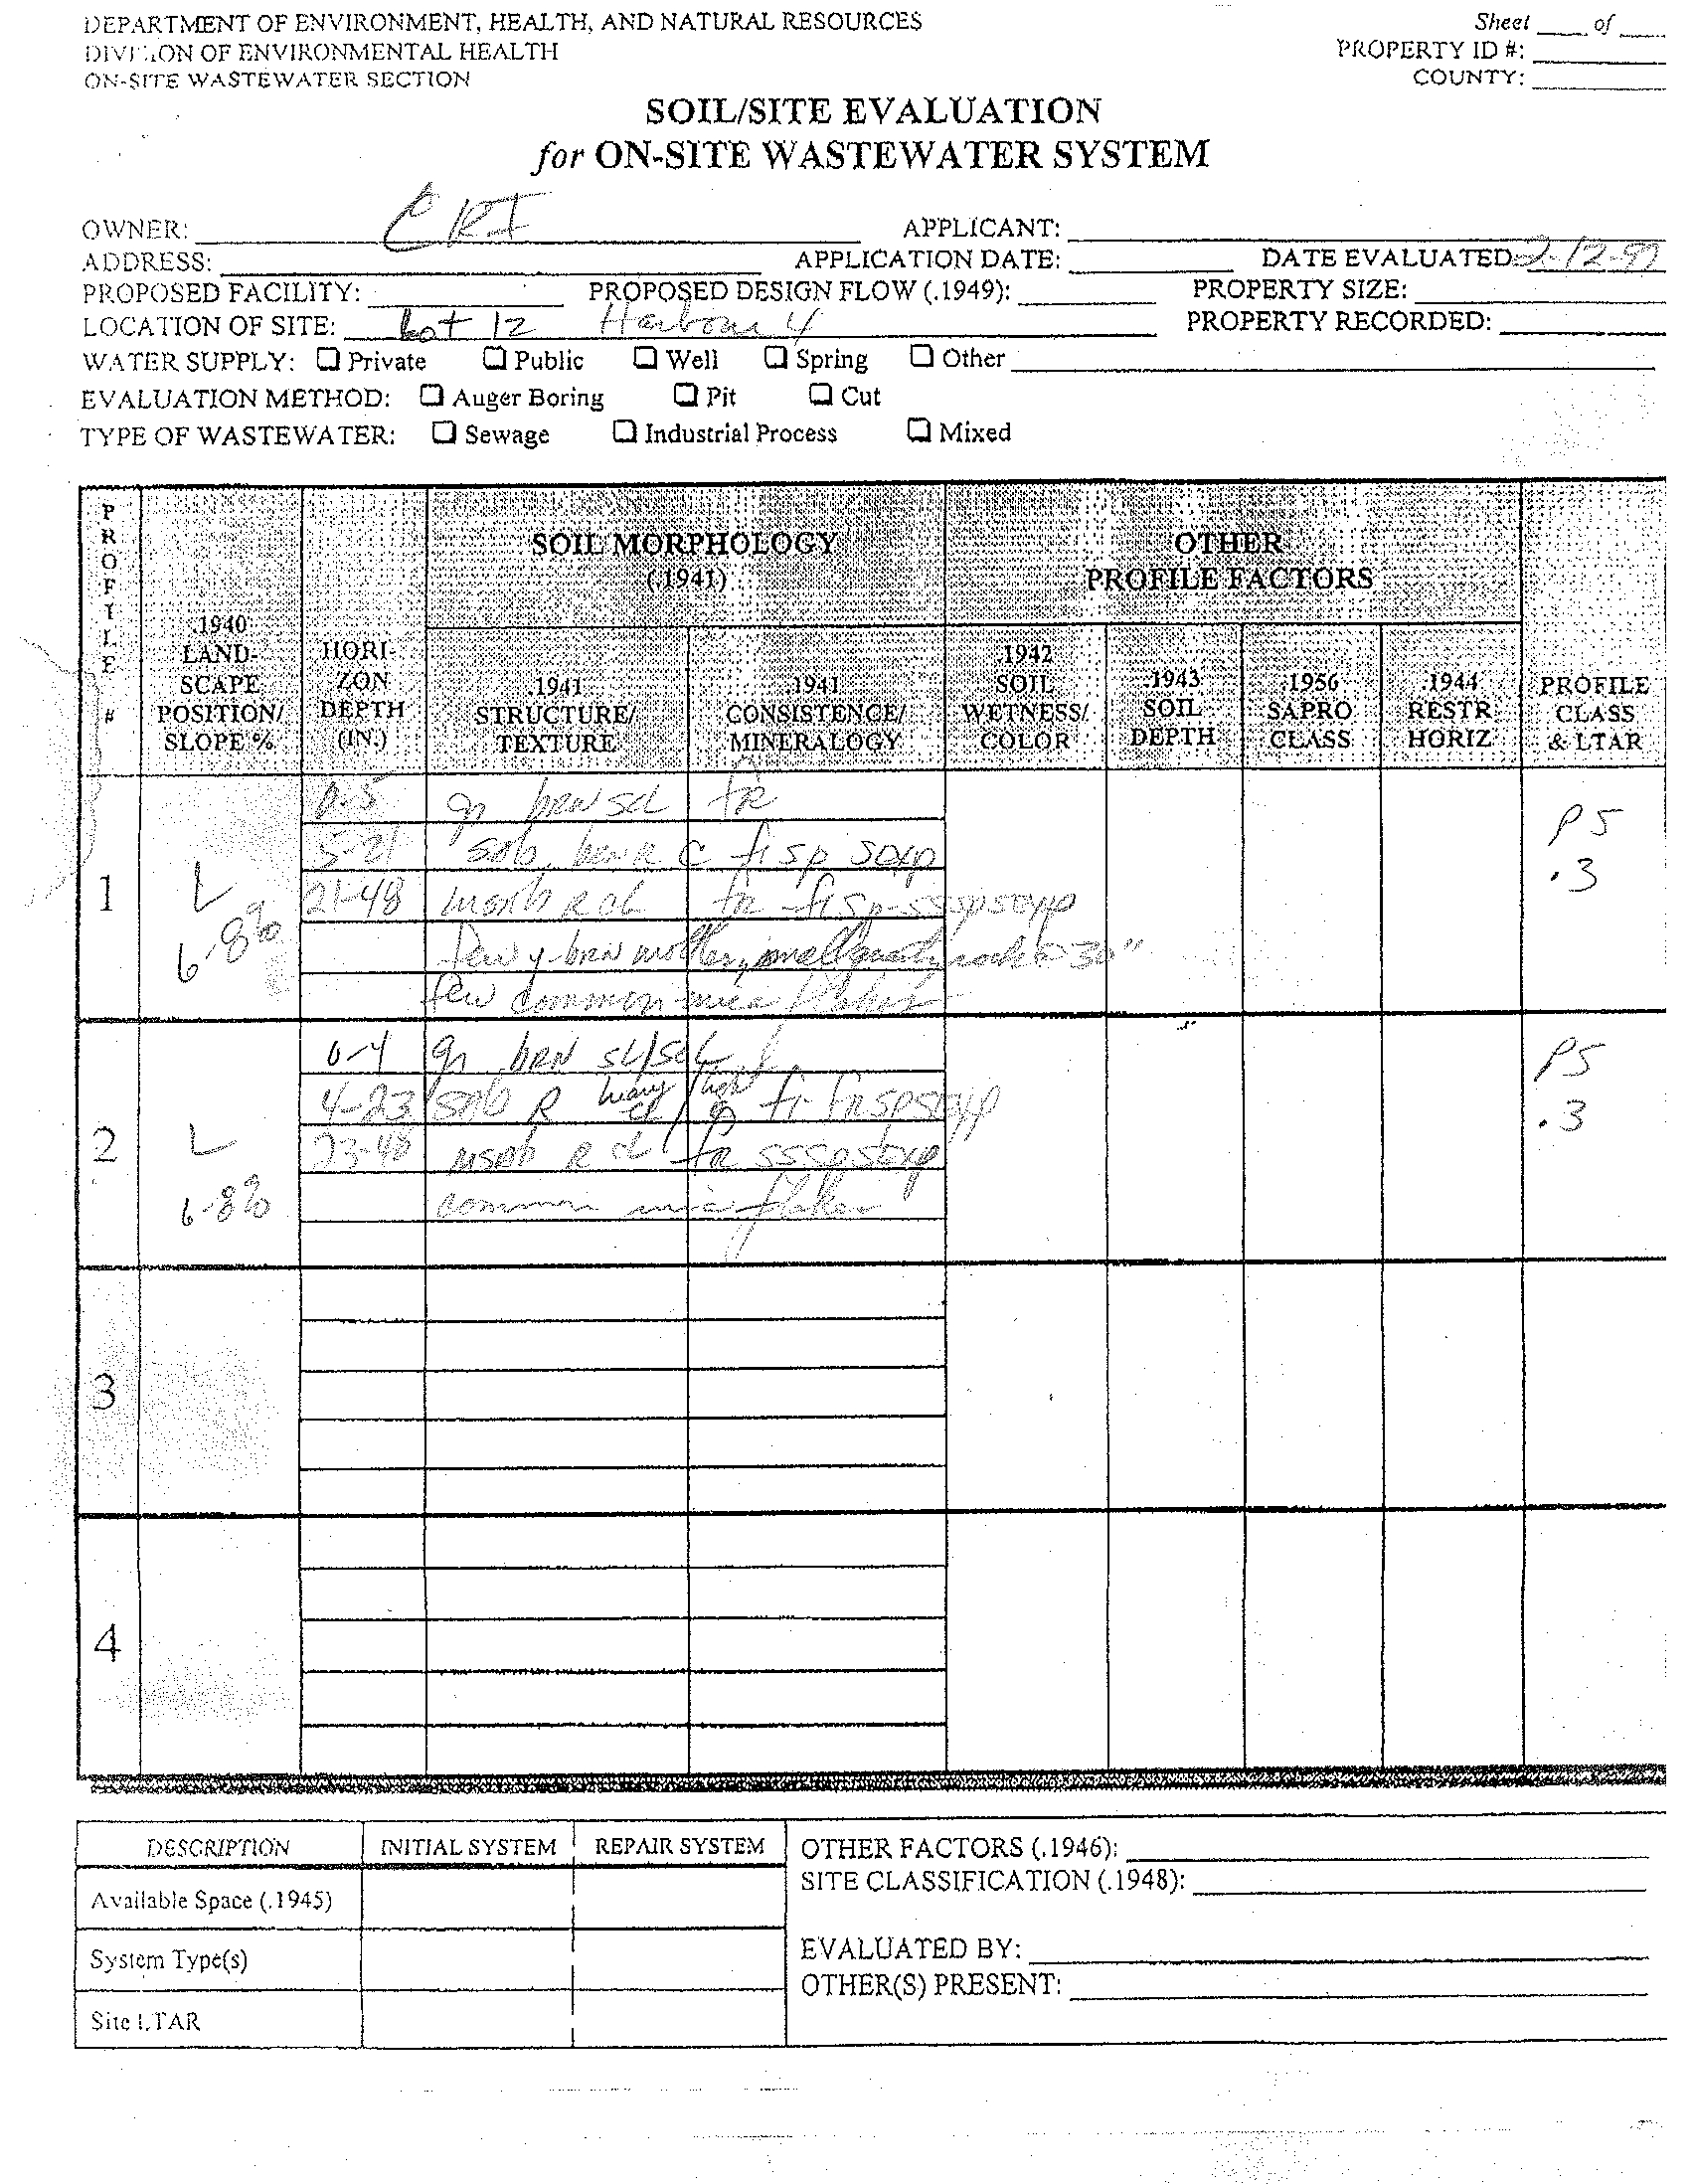 DEPARTMENT OF ENVIRONMENT, HEALTH, AND NATURAL RESOURCES
DIVISION OF ENVIRONMENTAL HEALTH
ON-SITE WASTEWATER SECTION
Sheet ____ of ____
PROPERTY ID #: ____
COUNTY: ____
SOIL/SITE EVALUATION
for ON-SITE WASTEWATER SYSTEM
OWNER: CRI APPLICANT:
ADDRESS: APPLICATION DATE: DATE EVALUATED: 2-12-97
PROPOSED FACILITY: PROPOSED DESIGN FLOW (.1949): PROPERTY SIZE:
LOCATION OF SITE: Lot 12 Harbour 4 PROPERTY RECORDED:
WATER SUPPLY: ❑ Private ❑ Public ❑ Well ❑ Spring ❑ Other
EVALUATION METHOD: ❑ Auger Boring ❑ Pit ❑ Cut
TYPE OF WASTEWATER: ❑ Sewage ❑ Industrial Process ❑ Mixed
PROFILE #
.1940 LAND-SCAPE POSITION/ SLOPE %
HORI-ZON DEPTH (IN.)
SOIL MORPHOLOGY (.1941)
.1941 STRUCTURE/ TEXTURE
.1941 CONSISTENCE/ MINERALOGY
OTHER PROFILE FACTORS
.1942 SOIL WETNESS/ COLOR
.1943 SOIL DEPTH
.1956 SAPRO CLASS
.1944 RESTR HORIZ
PROFILE CLASS & LTAR
1
L
6-8%
0-5 gr brn scl fr
5-21 sbk brn R C fi sp
21-48 R cl fr-fi
few y-brn 30"
few common mica flakes
PS
.3
2
L
6-8%
0-4 gr brn sl/scl
4-23 sbk R heavy cl / light c fi-fr
23-48 R cl fr
common mica flakes
PS
.3
3
4
DESCRIPTION INITIAL SYSTEM REPAIR SYSTEM
Available Space (.1945)
System Type(s)
Site LTAR
OTHER FACTORS (.1946):
SITE CLASSIFICATION (.1948):
EVALUATED BY:
OTHER(S) PRESENT: